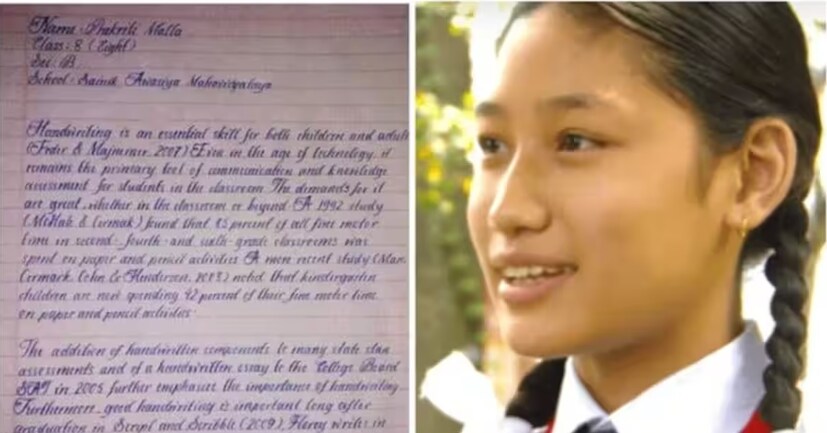 Name:- Prakriti Malla
Class: 8 (Eight)
Sec: B
School:- Sainik Awasiya Mahavidyalaya
Handwriting is an essential skill for both children and adult
(Feder & Majnemer, 2007) Even in the age of technology, it
remains the primary tool of communication and knowledge
assessment for students in the classroom. The demands for it
are great, whether in the classroom or beyond. A 1992 study
(McHale & Cermak) found that 85 percent of all fine motor
time in second- fourth- and sixth-grade classrooms was
spent on paper and pencil activities. A more recent study (Mar
Cermack, Cohn & Henderson, 2013) noted that kindergarten
children are now spending 42 percent of their fine motor time
on paper and pencil activities.
The addition of handwritten components to many state stan
assessments and of a handwritten essay to the College Board
SAT in 2005 further emphasize the importance of handwriting.
Furthermore, good handwriting is important long after
graduation in Script and Scribble (2009), Florey writes in